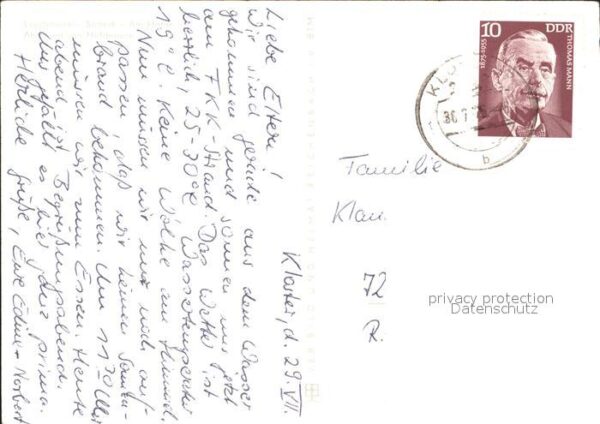 Kloster, d. 29. VII.
Liebe Eltern!
Wir sind gerade aus dem Wasser
gekommen und sonnen uns jetzt
am FKK-Strand. Das Wetter ist
herrlich, 25-30°C Wassertemperatur
19°C. Keine Wolke am Himmel.
Nun müssen wir nur noch auf-
passen, daß wir keinen Sonnen-
brand bekommen. Um 11³⁰ Uhr
müssen wir zum Essen. Heute
abend ist Begrüßungsabend.
Uns gefällt es hier ganz prima.
Herzliche Grüße, Eure Edine + Norbert
10 DDR
THOMAS MANN
1875-1955
30.7.
b
Familie
Klau.
72
R.
privacy protection
Datenschutz